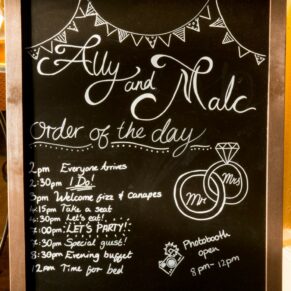 Ally
and Malc
Order of the day
2pm Everyone Arrives
2:30pm "I Do"
3pm Welcome fizz & canapes
4:15pm Take a seat
4:30pm Let's eat!
7:00pm: LET'S PARTY!
7:30pm Special guest!
8:30pm Evening buffet
12am Time for bed
Mr Mrs
Photobooth
open
8pm-12pm